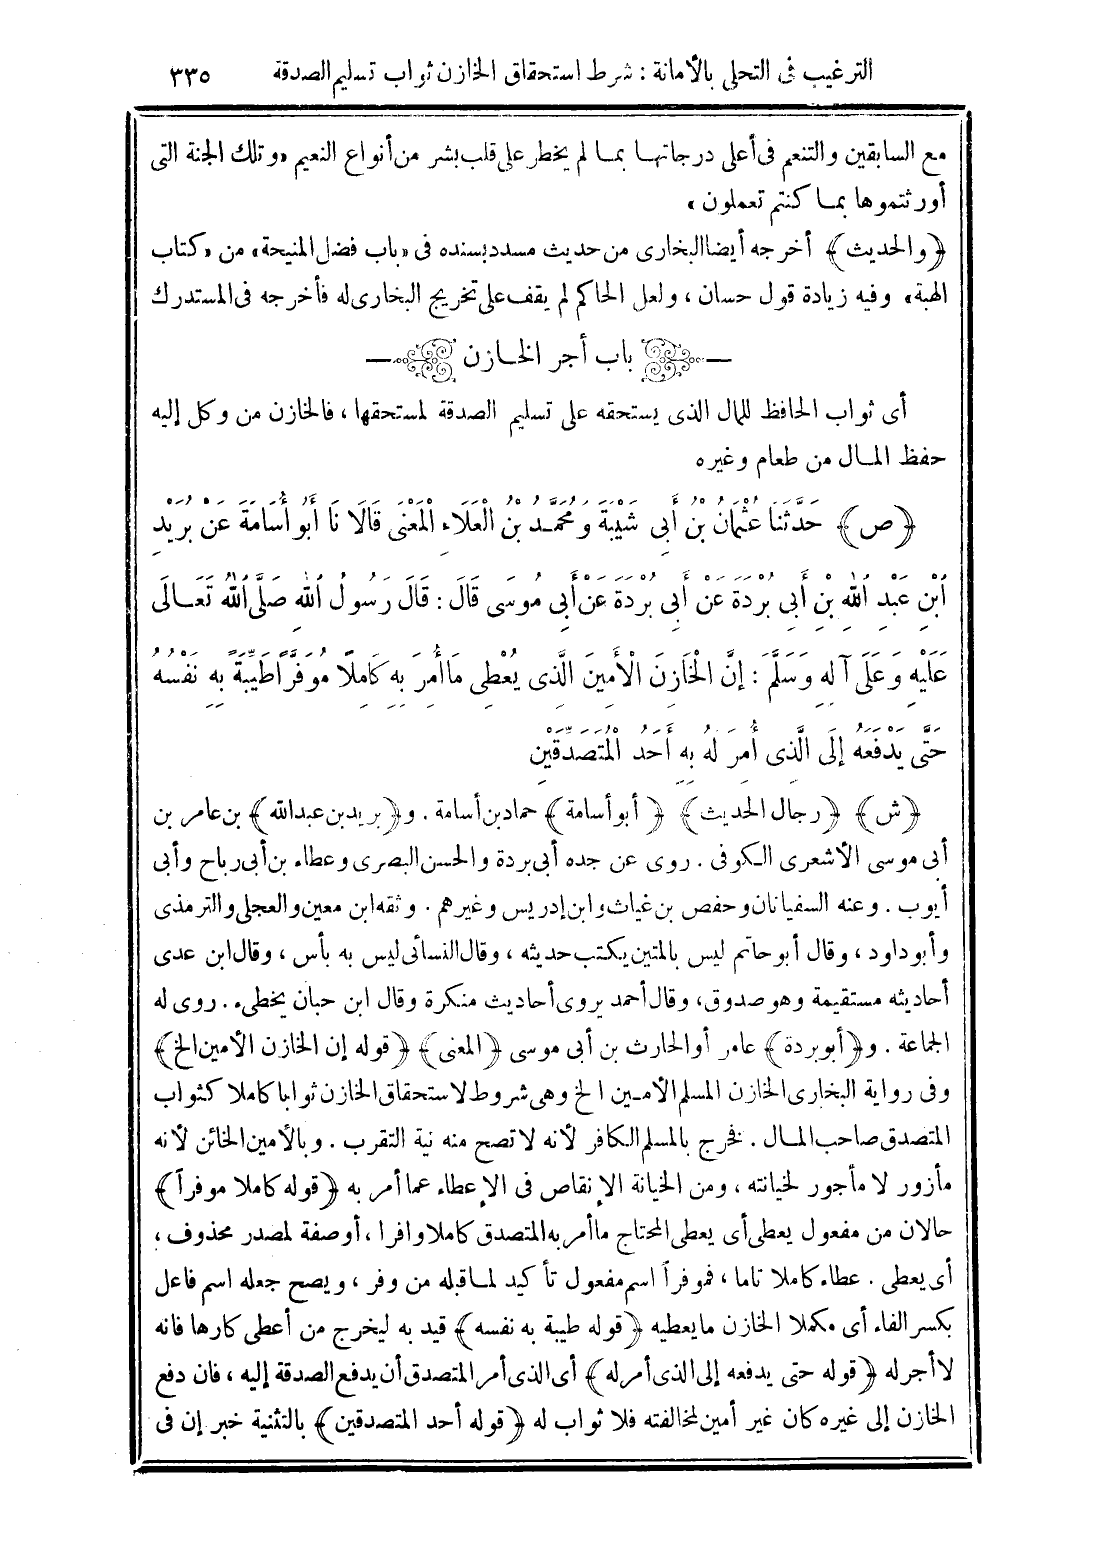 الترغيب فى التحلى بالأمانة : شرط استحقاق الخازن ثواب تسليم الصدقة ٣٣٥
مع السابقين والتنعم فى أعلى درجاتهـا بمـا لم يخطر على قلب بشر من أنواع النعيم «وتلك الجنة التى
أورثتموها بمـا كنتم تعملون»
﴿والحديث﴾ أخرجه أيضا البخارى من حديث مسدد بسنده فى «باب فضل المنيحة» من «كتاب
الهبة» وفيه زيادة قول حسان ، ولعل الحاكم لم يقف على تخريج البخارى له فأخرجه فى المستدرك
باب أجر الخـازن
أى ثواب الحافظ للمال الذى يستحقه على تسليم الصدقة لمستحقها ، فالخازن من وكل إليه
حفظ المـال من طعام وغيره
﴿ص﴾ حَدَّثَنَا عُثْمَانُ بْنُ أَبِى شَيْبَةَ وَمُحَمَّـدُ بْنُ الْعَلَاءِ الْمَعْنَى قَالَا نَا أَبُو أُسَامَةَ عَنْ بُرَيْدِ
ابْنِ عَبْدِ اللهِ بْنِ أَبِى بُرْدَةَ عَنْ أَبِى بُرْدَةَ عَنْ أَبِى مُوسَى قَالَ : قَالَ رَسُولُ اللهِ صَلَّى اللهُ تَعَـالَى
عَلَيْهِ وَعَلَى آلِهِ وَسَلَّمَ : إِنَّ الْخَازِنَ الْأَمِينَ الَّذِى يُعْطِى مَا أُمِرَ بِهِ كَامِلًا مُوَفَّرًا طَيِّبَةً بِهِ نَفْسُهُ
حَتَّى يَدْفَعَهُ إِلَى الَّذِى أُمِرَ لَهُ بِهِ أَحَدُ الْمُتَصَدِّقَيْنِ
﴿ش﴾ ﴿رجال الحديث﴾ ﴿أبو أسامة﴾ حماد بن أسامة . و﴿بريد بن عبد الله﴾ بن عامر بن
أبى موسى الأشعرى الـكوفى . روى عن جده أبى بردة والحسن البصرى وعطاء بن أبى رباح وأبى
أيوب . وعنه السفيانان وحفص بن غياث وابن إدريس وغيرهم . وثقه ابن معين والعجلى والترمذى
وأبو داود ، وقال أبو حاتم ليس بالمتين يكتب حديثه ، وقال النسائى ليس به بأس ، وقال ابن عدى
أحاديثه مستقيمة وهو صدوق ، وقال أحمد يروى أحاديث منكرة وقال ابن حبان يخطىء . روى له
الجماعة . و﴿أبو بردة﴾ عامر أو الحارث بن أبى موسى ﴿المعنى﴾ ﴿قوله إن الخازن الأمين الخ﴾
وفى رواية البخارى الخازن المسلم الأمـين الخ وهى شروط لاستحقاق الخازن ثوابا كاملا كثواب
المتصدق صاحب المـال . فخرج بالمسلم الكافر لأنه لا تصح منه نية التقرب . وبالأمين الخائن لأنه
مأزور لا مأجور لخيانته ، ومن الخيانة الإنقاص فى الإعطاء عما أمر به ﴿قوله كاملا موفراً﴾
حالان من مفعول يعطى أى يعطى المحتاج ما أمر به المتصدق كاملا وافرا ، أو صفة لمصدر محذوف ،
أى يعطى . عطاء كاملا تاما ، فموفراً اسم مفعول تأكيد لمـا قبله من وفر ، ويصح جعله اسم فاعل
بكسر الفاء أى مكملا الخازن ما يعطيه ﴿قوله طيبة به نفسه﴾ قيد به ليخرج من أعطى كارها فانه
لا أجر له ﴿قوله حتى يدفعه إلى الذى أمر له﴾ أى الذى أمر المتصدق أن يدفع الصدقة إليه ، فان دفع
الخازن إلى غيره كان غير أمين لمخالفته فلا ثواب له ﴿قوله أحد المتصدقين﴾ بالتثنية خبر إن فى